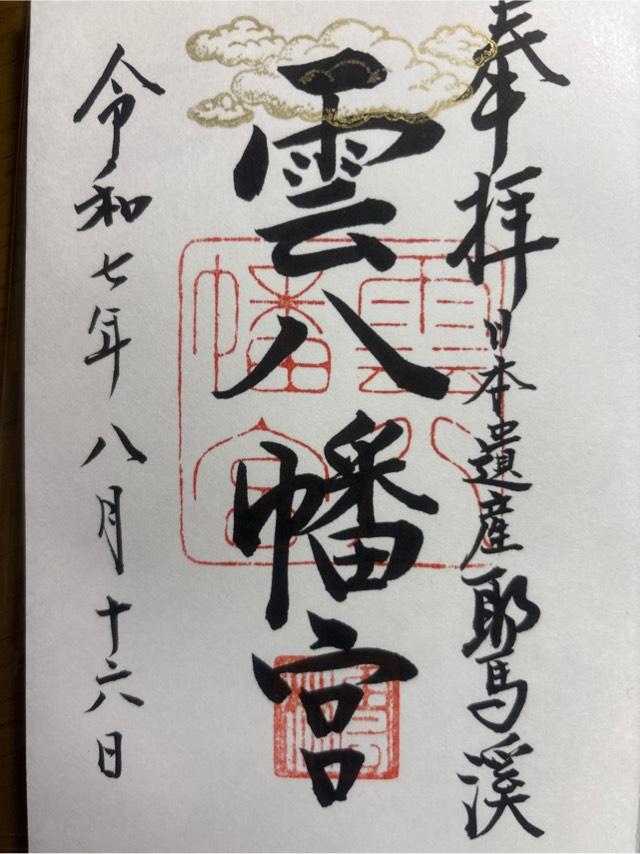 奉拝
日本遺産耶馬溪
雲八幡宮
雲八幡宮
令和七年八月十六日